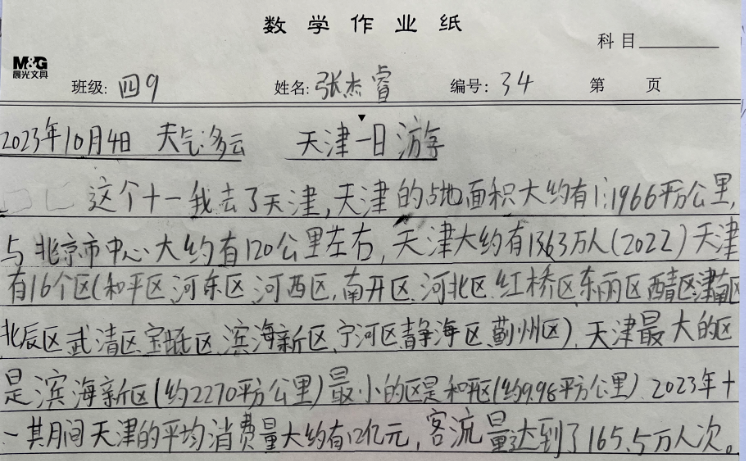 数学作业纸
科目
M&G
晨光文具
班级: 四9 姓名: 张杰睿 编号: 34 第 页
2023年10月4日 天气:多云 天津一日游
这个十一我去了天津,天津的占地面积大约有1:1966平方公里,
与北京市中心大约有120公里左右,天津大约有1363万人(2022)天津
有16个区(和平区.河东区.河西区.南开区.河北区.红桥区东丽区西青区津南区
北辰区武清区宝坻区.滨海新区.宁河区静海区.蓟州区).天津最大的区
是滨海新区(约2270平方公里)最小的区是和平区(约9.98平方公里).2023年十
一其月间天津的平均消费量大约有12亿元,客流量达到了165.5万人次。